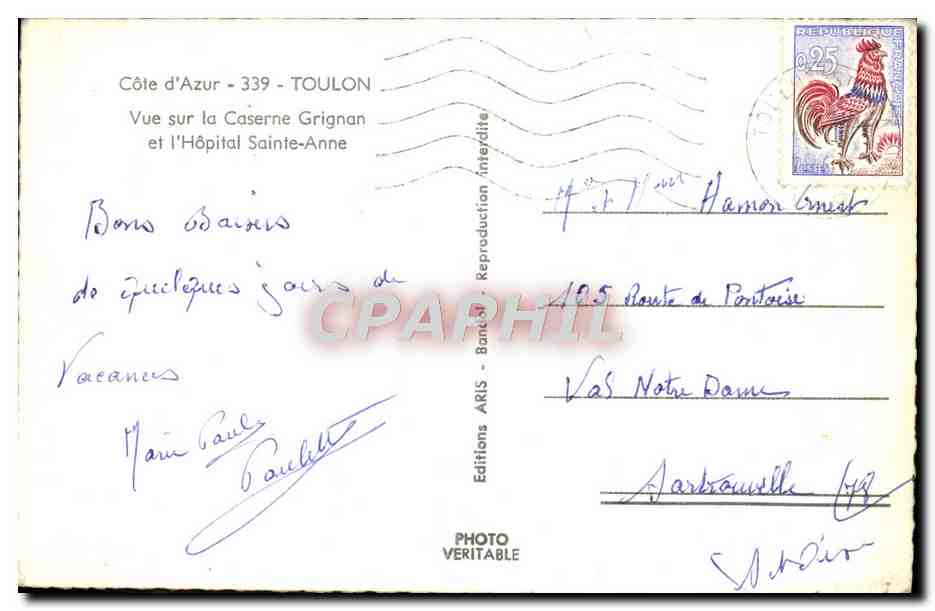 Côte d'Azur - 339 - TOULON
Vue sur la Caserne Grignan
et l'Hôpital Sainte-Anne
Bons Baisers
de quelques jours de
Vacances
Marie Paule
Paulette
Editions ARIS - Bandol - Reproduction interdite
PHOTO
VERITABLE
REPUBLIQUE
FRANÇAISE
0,25
POSTES
TOUL
Mr et Mme Hamon Ernest
405 Route de Pontoise
Val Notre Dame
Sartrouville (78)
CPAPHIL